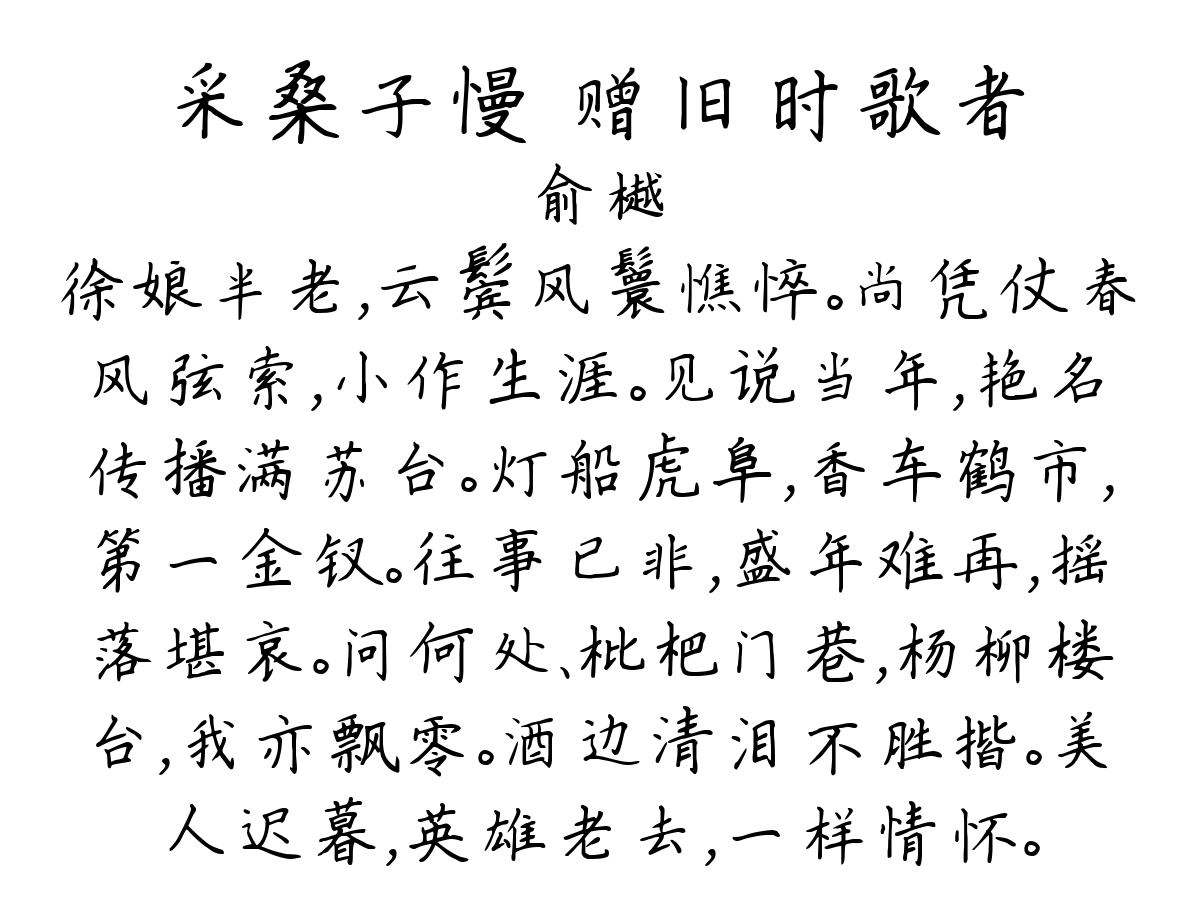 采桑子慢 赠旧时歌者
俞樾
徐娘半老,云鬓风鬟憔悴。尚凭仗春
风弦索,小作生涯。见说当年,艳名
传播满苏台。灯船虎阜,香车鹤市,
第一金钗。往事已非,盛年难再,摇
落堪哀。问何处、枇杷门巷,杨柳楼
台,我亦飘零。酒边清泪不胜揩。美
人迟暮,英雄老去,一样情怀。